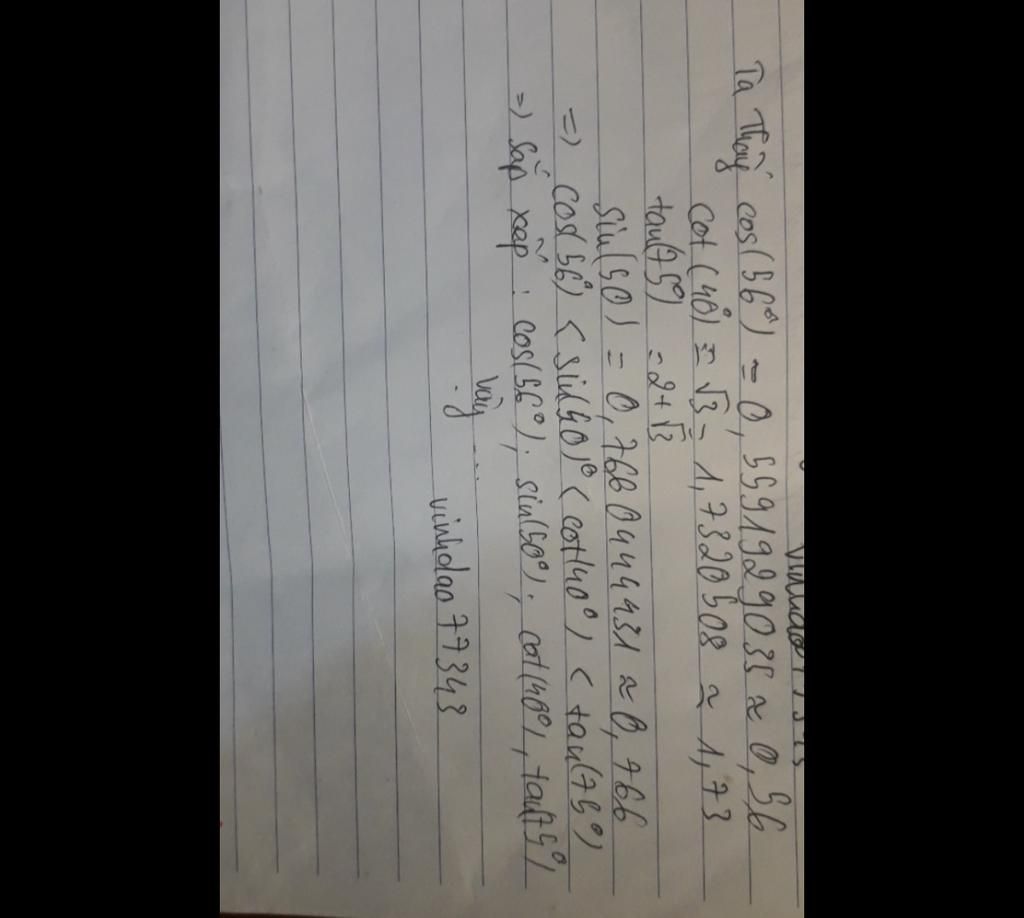 Ta thấy cos(56°) = 0,559192903 ≈ 0,56
cot (40°) = √3 = 1,7320508 ≈ 1,73
tan(75°) = 2+√3
sin(50) = 0,7660444431 ≈ 0,766
=> cos(56°) < sin(50)° < cot(40°) < tan(75°)
=> sắp xếp : cos(56°), sin(50°), cot(40°), tan(75°)
Vậy ...
vinhdao77343